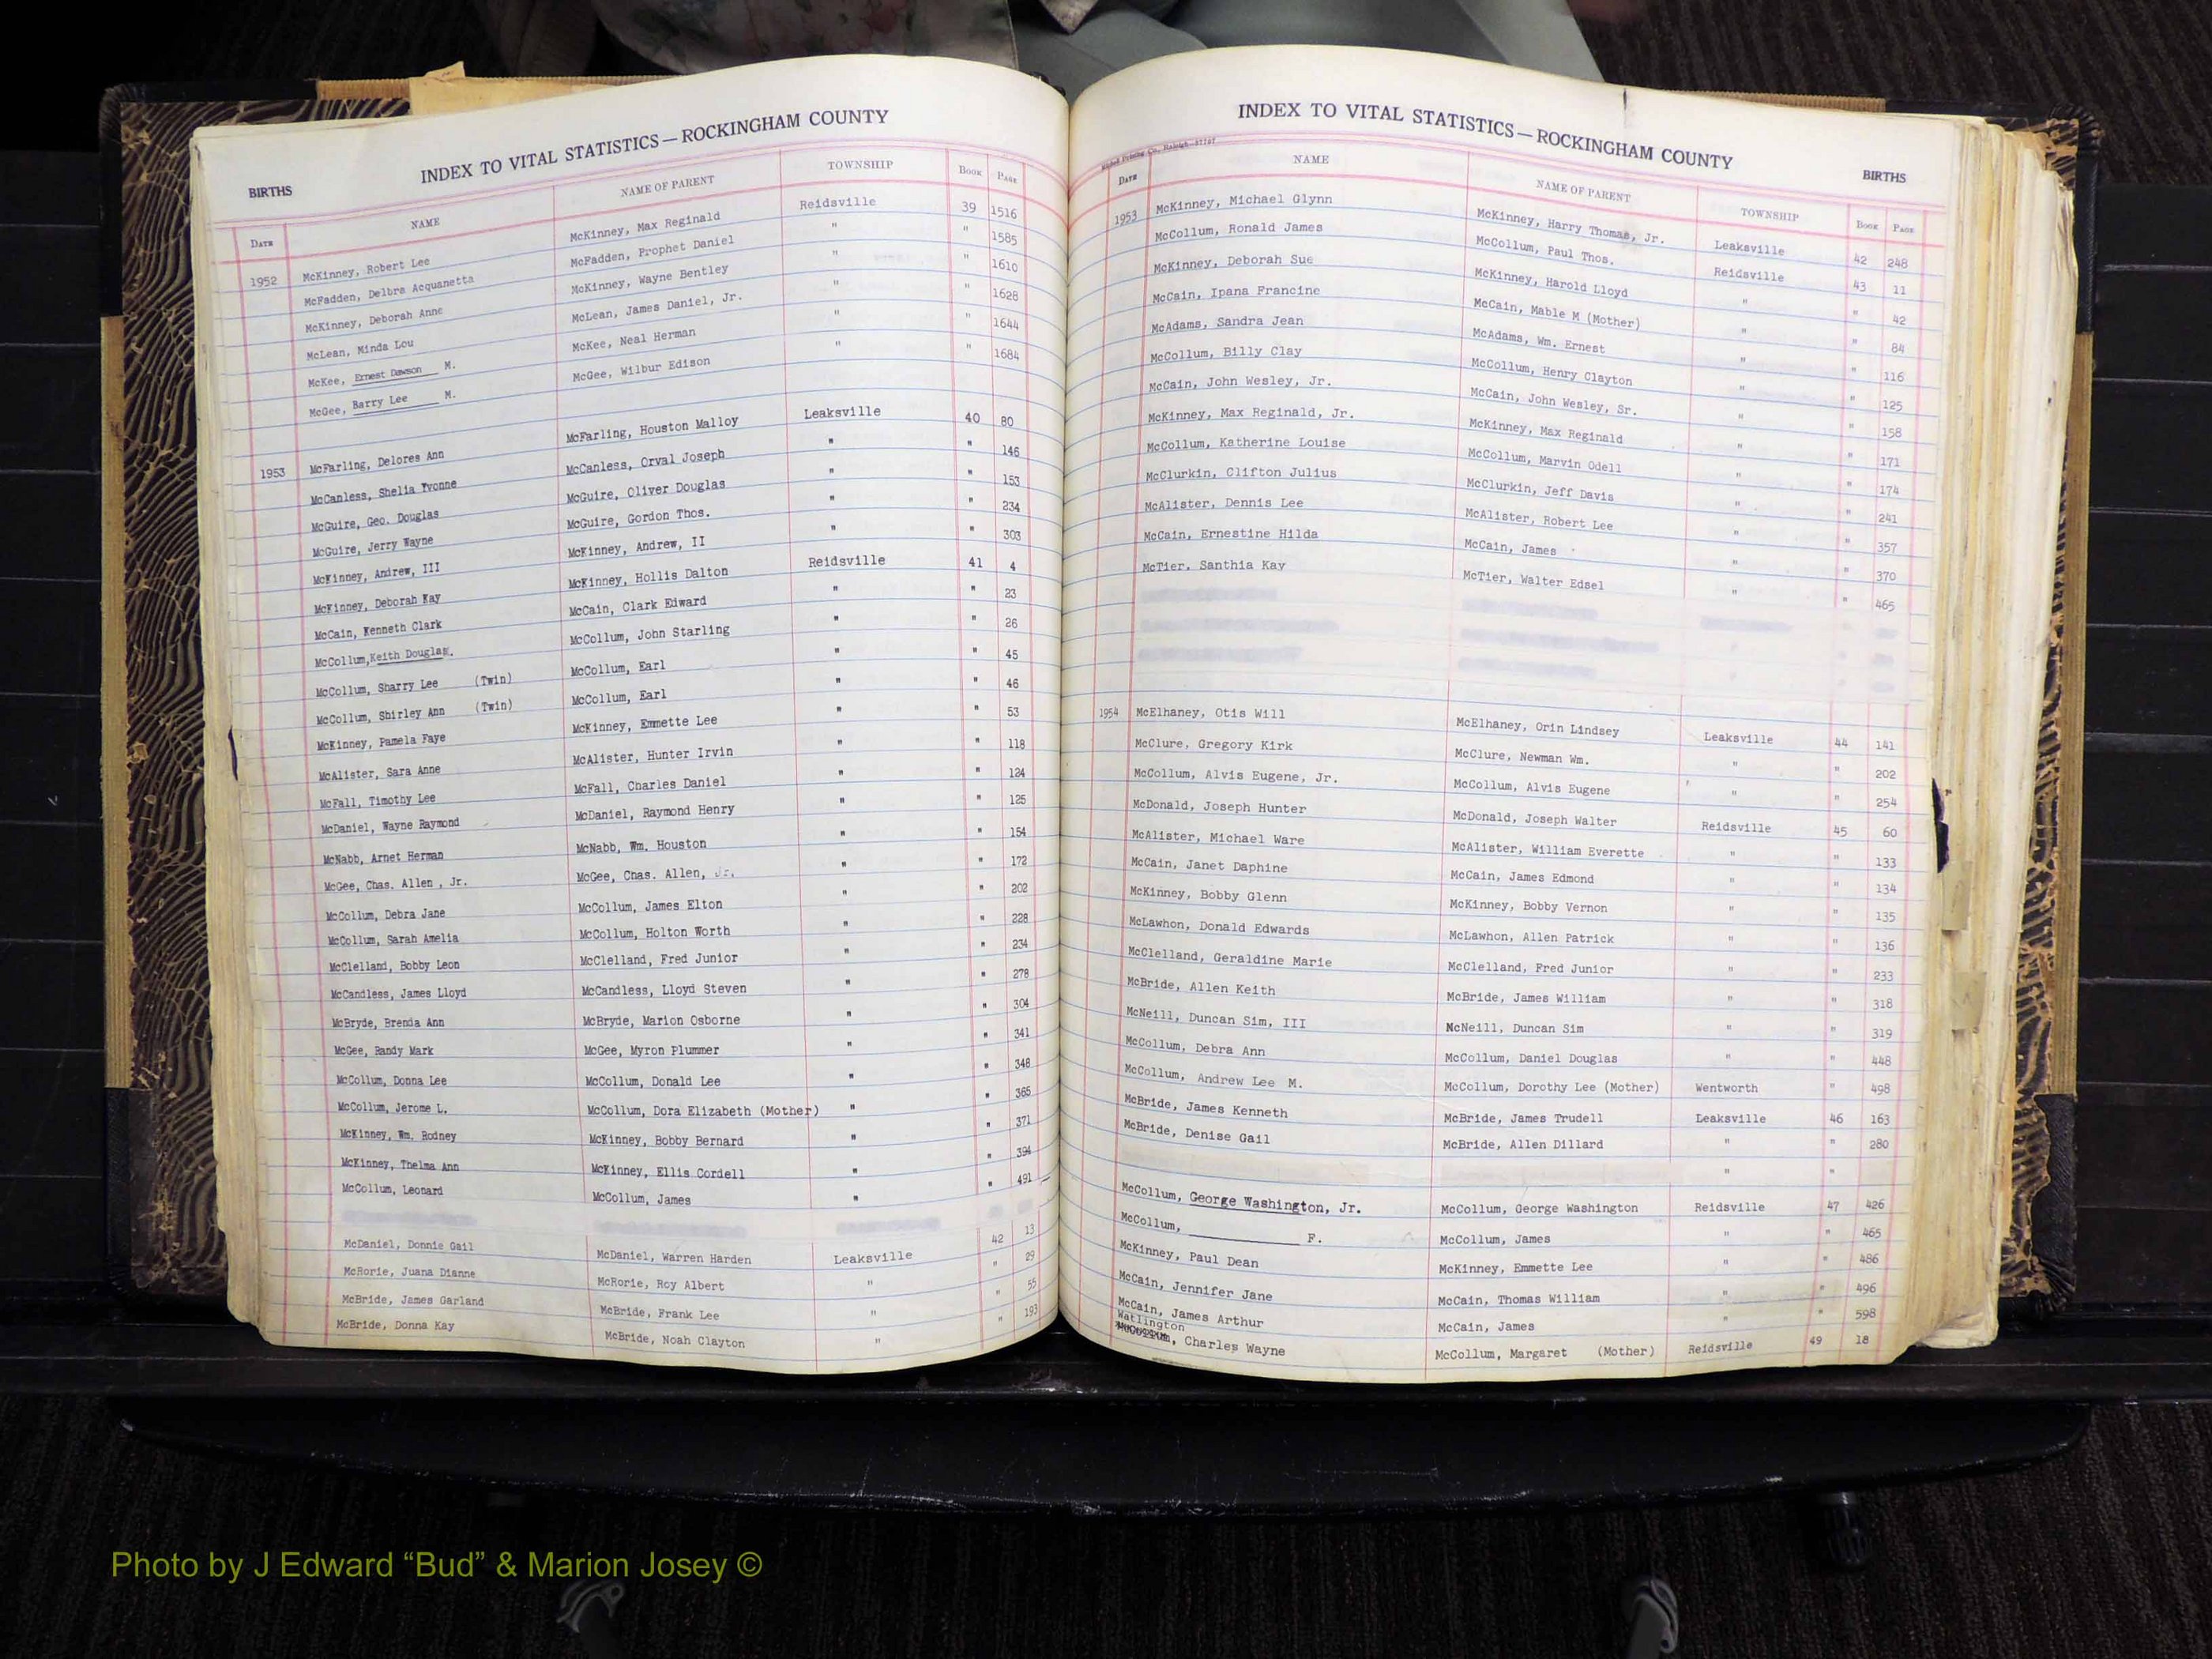 INDEX TO VITAL STATISTICS — ROCKINGHAM COUNTY
BIRTHS
DATE NAME NAME OF PARENT TOWNSHIP BOOK PAGE
1952 McKinney, Robert Lee McKinney, Max Reginald Reidsville 39 1516
McFadden, Delbra Acquanetta McFadden, Prophet Daniel " " 1585
McKinney, Deborah Anne McKinney, Wayne Bentley " " 1610
McLean, Minda Lou McLean, James Daniel, Jr. " " 1628
McKee, Ernest Dawson M. McKee, Neal Herman " " 1644
McGee, Barry Lee M. McGee, Wilbur Edison " " 1684
1953 McFarling, Delores Ann McFarling, Houston Malloy Leaksville 40 80
McCanless, Shelia Yvonne McCanless, Orval Joseph " " 146
McGuire, Geo. Douglas McGuire, Oliver Douglas " " 153
McGuire, Jerry Wayne McGuire, Gordon Thos. " " 234
McKinney, Andrew, III McKinney, Andrew, II " " 303
McKinney, Deborah Kay McKinney, Hollis Dalton Reidsville 41 4
McCain, Kenneth Clark McCain, Clark Edward " " 23
McCollum, Keith Douglas. McCollum, John Starling " " 26
McCollum, Sharry Lee (Twin) McCollum, Earl " " 45
McCollum, Shirley Ann (Twin) McCollum, Earl " " 46
McKinney, Pamela Faye McKinney, Emmette Lee " " 53
McAlister, Sara Anne McAlister, Hunter Irvin " " 118
McFall, Timothy Lee McFall, Charles Daniel " " 124
McDaniel, Wayne Raymond McDaniel, Raymond Henry " " 125
McNabb, Arnet Herman McNabb, Wm. Houston " " 154
McGee, Chas. Allen , Jr. McGee, Chas. Allen, Jr. " " 172
McCollum, Debra Jane McCollum, James Elton " " 202
McCollum, Sarah Amelia McCollum, Holton Worth " " 228
McClelland, Bobby Leon McClelland, Fred Junior " " 234
McCandless, James Lloyd McCandless, Lloyd Steven " " 278
McBryde, Brenda Ann McBryde, Marion Osborne " " 304
McGee, Randy Mark McGee, Myron Plummer " " 341
McCollum, Donna Lee McCollum, Donald Lee " " 348
McCollum, Jerome L. McCollum, Dora Elizabeth (Mother) " " 365
McKinney, Wm. Rodney McKinney, Bobby Bernard " " 371
McKinney, Thelma Ann McKinney, Ellis Cordell " " 394
McCollum, Leonard McCollum, James " " 491
McDaniel, Donnie Gail McDaniel, Warren Harden Leaksville 42 13
McRorie, Juana Dianne McRorie, Roy Albert " " 29
McBride, James Garland McBride, Frank Lee " " 55
McBride, Donna Kay McBride, Noah Clayton " " 193
INDEX TO VITAL STATISTICS — ROCKINGHAM COUNTY
BIRTHS
DATE NAME NAME OF PARENT TOWNSHIP BOOK PAGE
1953 McKinney, Michael Glynn McKinney, Harry Thomas, Jr. Leaksville 42 248
McCollum, Ronald James McCollum, Paul Thos. Reidsville 43 11
McKinney, Deborah Sue McKinney, Harold Lloyd " " 42
McCain, Ipana Francine McCain, Mable M (Mother) " " 84
McAdams, Sandra Jean McAdams, Wm. Ernest " " 116
McCollum, Billy Clay McCollum, Henry Clayton " " 125
McCain, John Wesley, Jr. McCain, John Wesley, Sr. " " 158
McKinney, Max Reginald, Jr. McKinney, Max Reginald " " 171
McCollum, Katherine Louise McCollum, Marvin Odell " " 174
McClurkin, Clifton Julius McClurkin, Jeff Davis " " 241
McAlister, Dennis Lee McAlister, Robert Lee " " 357
McCain, Ernestine Hilda McCain, James " " 370
McTier, Santhia Kay McTier, Walter Edsel " " 465
1954 McElhaney, Otis Will McElhaney, Orin Lindsey Leaksville 44 141
McClure, Gregory Kirk McClure, Newman Wm. " " 202
McCollum, Alvis Eugene, Jr. McCollum, Alvis Eugene " " 254
McDonald, Joseph Hunter McDonald, Joseph Walter Reidsville 45 60
McAlister, Michael Ware McAlister, William Everette " " 133
McCain, Janet Daphine McCain, James Edmond " " 134
McKinney, Bobby Glenn McKinney, Bobby Vernon " " 135
McLawhon, Donald Edwards McLawhon, Allen Patrick " " 136
McClelland, Geraldine Marie McClelland, Fred Junior " " 233
McBride, Allen Keith McBride, James William " " 318
McNeill, Duncan Sim, III McNeill, Duncan Sim " " 319
McCollum, Debra Ann McCollum, Daniel Douglas " " 448
McCollum, Andrew Lee M. McCollum, Dorothy Lee (Mother) Wentworth " 498
McBride, James Kenneth McBride, James Trudell Leaksville 46 163
McBride, Denise Gail McBride, Allen Dillard " " 280
" "
McCollum, George Washington, Jr. McCollum, George Washington Reidsville 47 426
McCollum, F. McCollum, James " " 465
McKinney, Paul Dean McKinney, Emmette Lee " " 486
McCain, Jennifer Jane McCain, Thomas William " " 496
McCain, James Arthur McCain, James " " 598
Watlington
McCollum, Charles Wayne McCollum, Margaret (Mother) Reidsville 49 18
Photo by J Edward “Bud” & Marion Josey ©